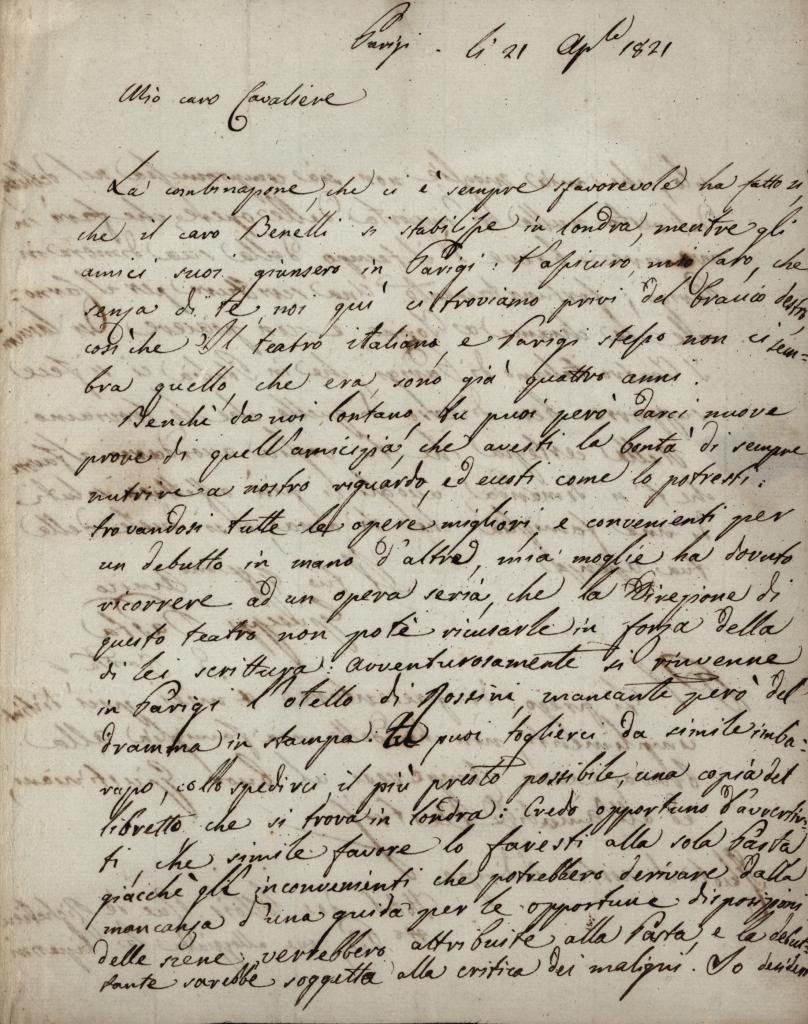 Parigi - li 21 Aple 1821
Mio caro Cavaliere
La combinazione, che ci è sempre sfavorevole ha fatto sì,
che il caro Benelli si stabilisse in londra, mentre gli
amici suoi giunsero in Parigi: t'assicuro, mio caro, che
senza di te, noi quì ci troviamo privi del braccio destro,
così che Il teatro italiano, e Parigi stesso non ci sem=
bra quello, che era, sono già quattro anni.
Benchè da noi lontano, tu puoi però darci nuove
prove di quell'amicizia, che avesti la bontà di sempre
nutrire a nostro riguardo, ed eccoti come lo potresti:
trovandosi tutte le opere migliori, e convenienti per
un debutto in mano d'altre, mia moglie ha dovuto
ricorrere ad un opera seria, che la Direzione di
questo teatro non potè ricusarle in forza della
di lei scrittura: avventurosamente si rinvenne
in Parigi l'otello di Rossini, mancante però del
dramma in stampa. tu puoi toglierci da simile imba=
razzo, collo spedirci il più presto possibile, una copia del
libretto che si trova in londra: Credo opportuno d'avvertir=
ti, che simile favore lo faresti alla sola Pasta
giacchè gli inconvenienti che potrebbero derivare dalla
mancanza d'una guida per le opportune disposizioni
delle scene verrebbero attribuite alla Pasta, e la debut=
tante sarebbe soggetta alla critica dei maligni. Io desidem